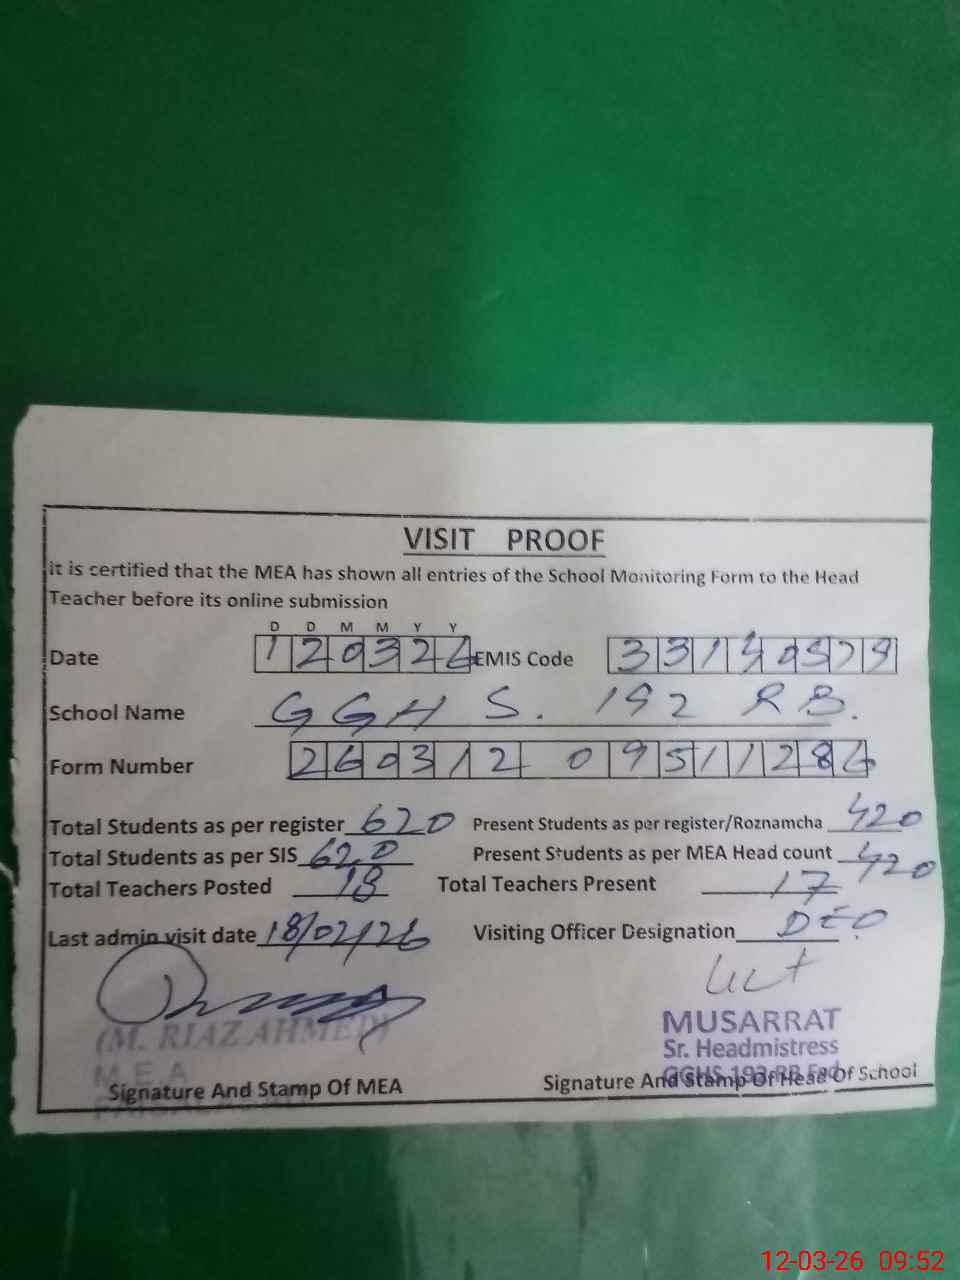 VISIT PROOF
It is certified that the MEA has shown all entries of the School Monitoring Form to the Head
Teacher before its online submission
D D M M Y Y
Date 120326 EMIS Code 33140579
School Name GGHS. 192 RB.
Form Number 260312 09511286
Total Students as per register 620 Present Students as per register/Roznamcha 420
Total Students as per SIS 620 Present Students as per MEA Head count 420
Total Teachers Posted 18 Total Teachers Present 17
Last admin visit date 18/02/26 Visiting Officer Designation DEO
(M. RIAZ AHMED) MUSARRAT
M.E.A Sr. Headmistress
GGHS 192 RB Fsd
Signature And Stamp Of MEA Signature And Stamp Of Head Of School
12-03-26 09:52